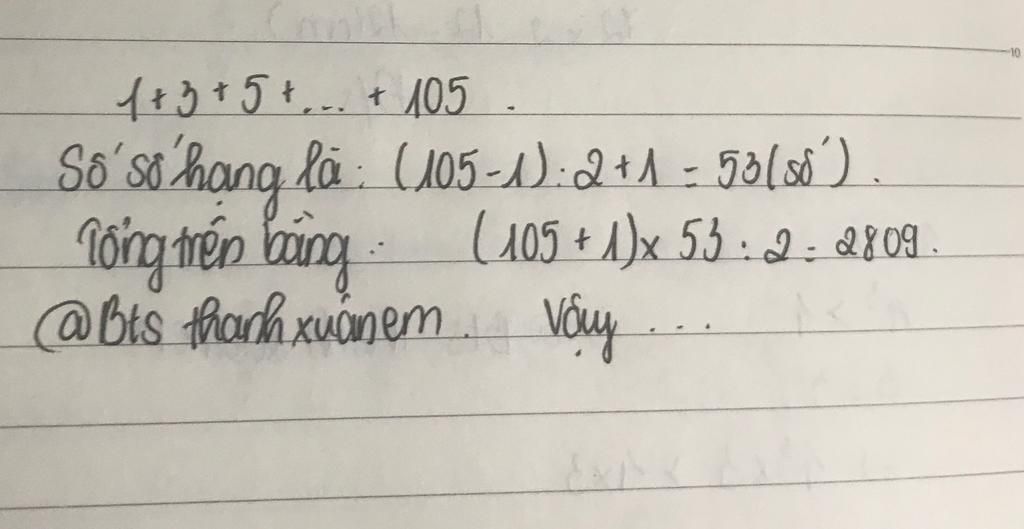 1 + 3 + 5 + ... + 105 .
Số số hạng là : (105 - 1) : 2 + 1 = 53 (số) .
Tổng trên bằng : (105 + 1) x 53 : 2 = 2809 .
@Bts thanh xuân em . Vậy ...
10